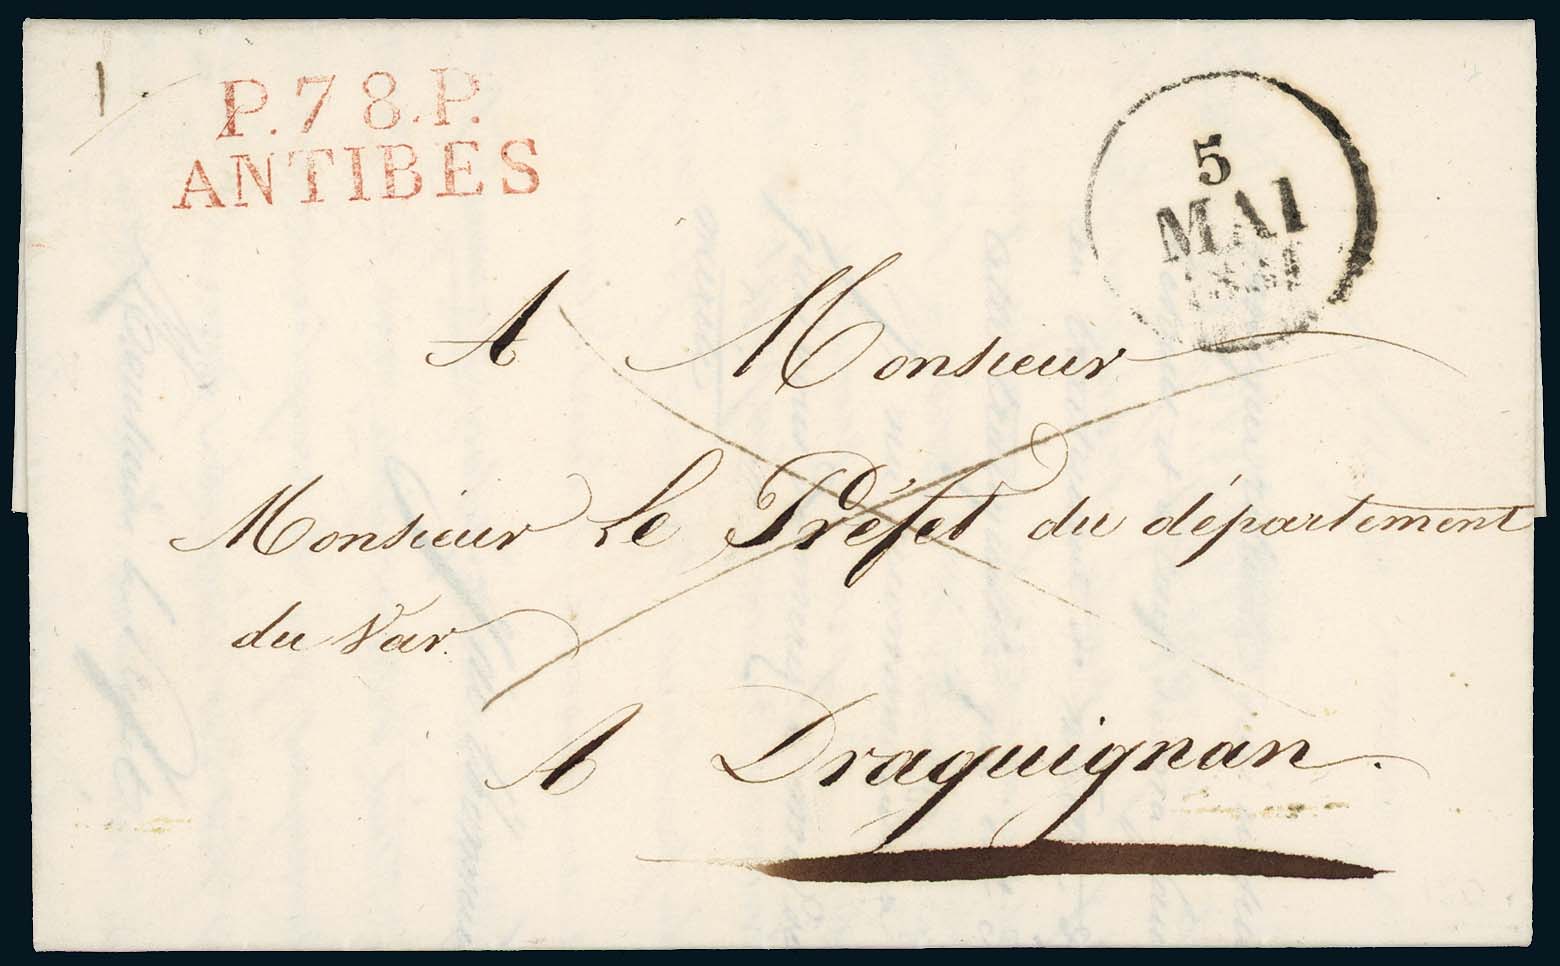 P.78.P.
ANTIBES
5
MAI
A Monsieur
Monsieur le Préfet du département
du Var.
A Draguignan.